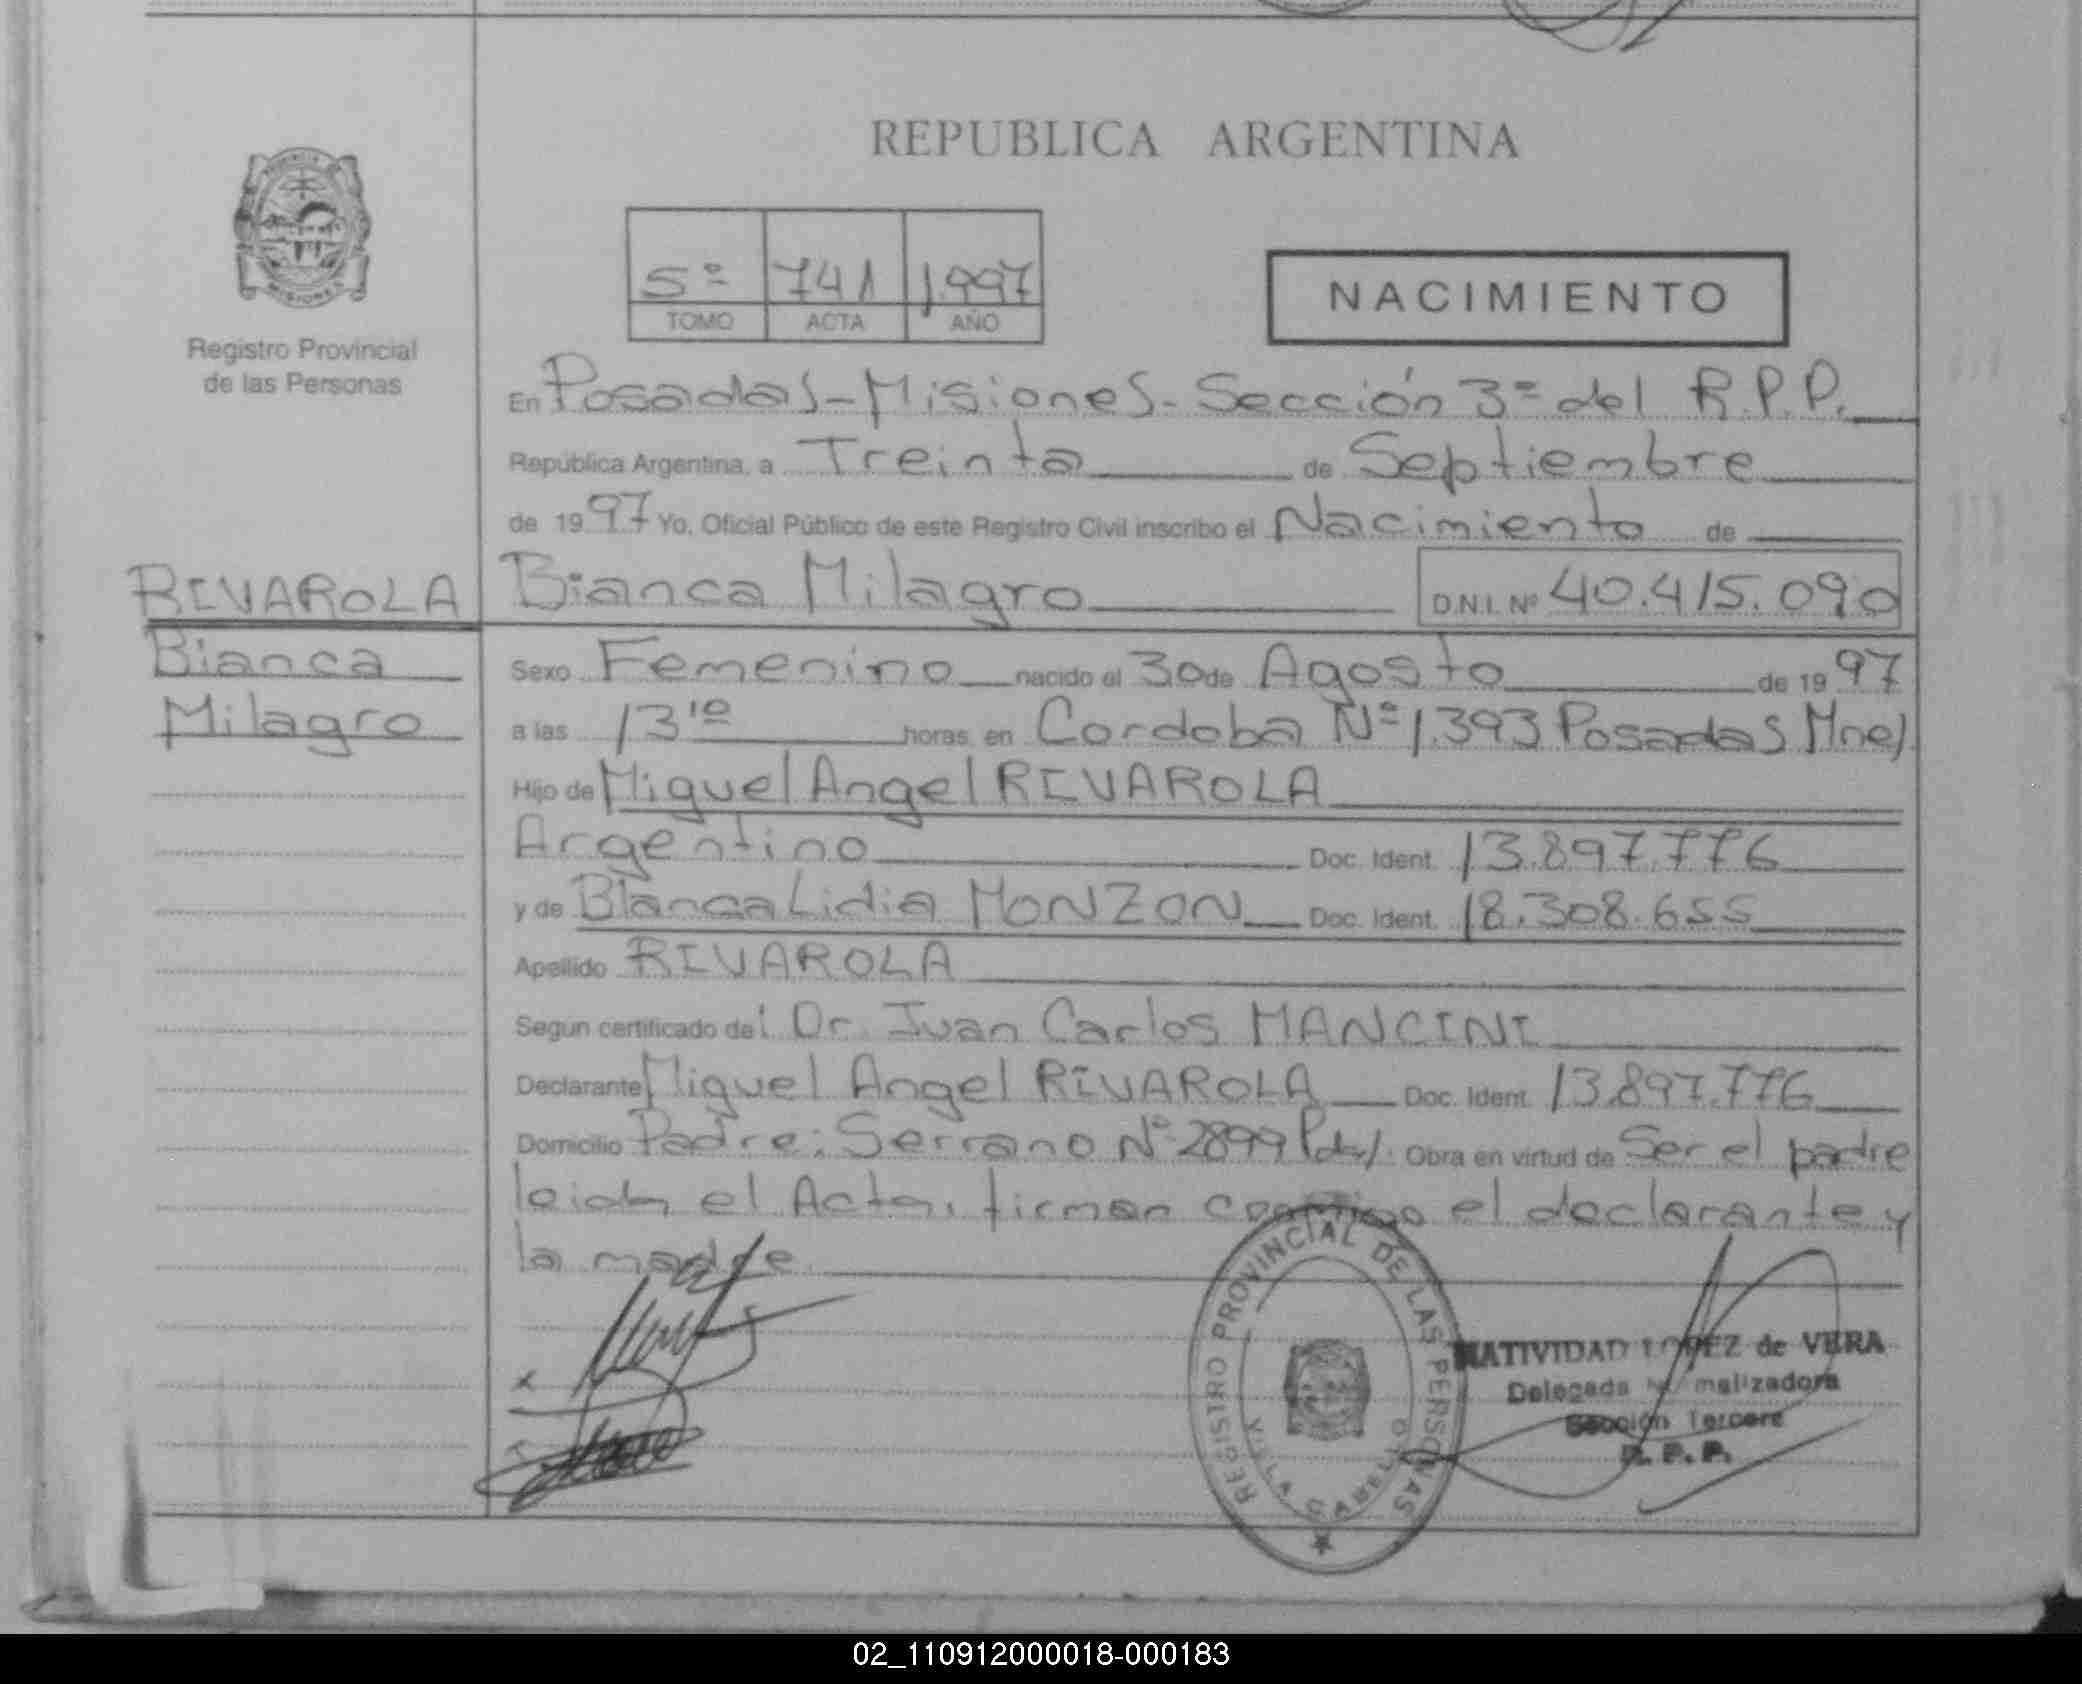 REPUBLICA ARGENTINA
5º 741 1.997
TOMO ACTA AÑO
NACIMIENTO
Registro Provincial
de las Personas
En Posadas-Misiones-Sección 3ª del R.P.P.
República Argentina, a Treinta de Septiembre
de 1997 Yo, Oficial Público de este Registro Civil inscribo el Nacimiento de
RIVAROLA
Bianca Milagro D.N.I. Nº 40.415.090
Bianca
Milagro
Sexo Femenino nacido el 30 de Agosto de 1997
a las 13'10 horas, en Cordoba Nº 1.393 Posadas Mnes
Hijo de Miguel Angel RIVAROLA
Argentino Doc. Ident. 13.897.776
y de Blanca Lidia MONZON Doc. Ident. 18.308.655
Apellido RIVAROLA
Segun certificado del Dr. Juan Carlos MANCINI
Declarante Miguel Angel RIVAROLA Doc. Ident. 13.897.776
Domicilio Padre: Serrano Nº 2899 Pdas/. Obra en virtud de Ser el padre
leida el Acta, firman conmigo el declarante y
la madre
REGISTRO PROVINCIAL DE LAS PERSONAS
VILLA CABELLO
NATIVIDAD LOPEZ de VERA
Delegada Normalizadora
Sección Tercera
R. P. P.
02_110912000018-000183